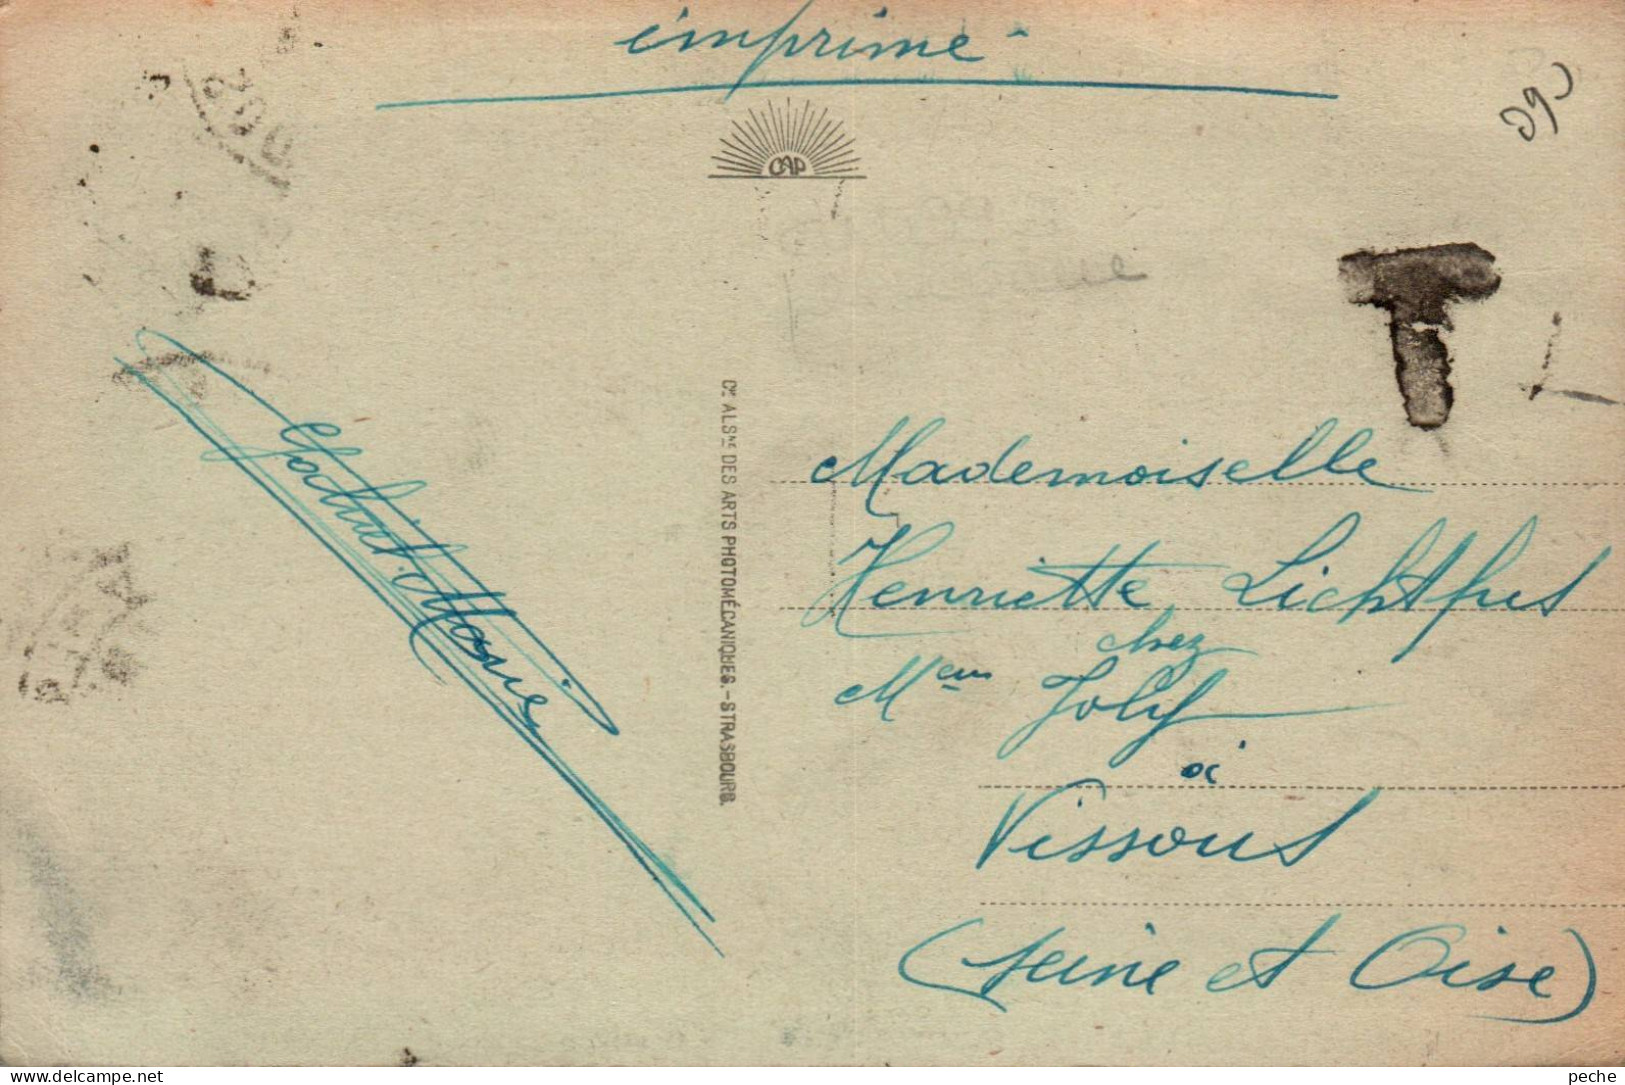 imprimé
CAP
T
Cie ALSne DES ARTS PHOTOMÉCANIQUES.-STRASBOURG.
Mademoiselle
Henriette Lichtfus
chez
Mme Joly
à
Vissous
(Seine et Oise)
Marie
delcampe.net
peche